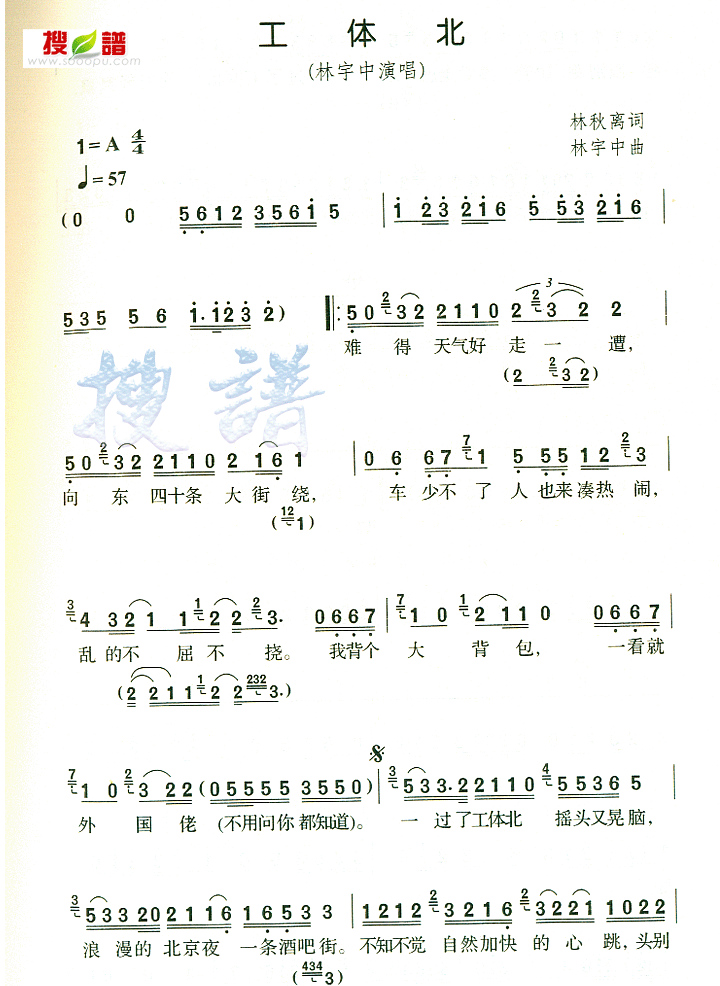 搜譜
www.sooopu.com
工 体 北
(林宇中演唱)
林秋离词
1=A 4/4
林宇中曲
♩=57
(0 0 5612 3561 5 | 1 23 216 5 53 216 |
535 56 1.123 2) ‖: 50 2 32 2110 2 2 3 2 2
3
难 得 天气好 走 一 遭,
(2 2 32)
搜譜
50 2 32 2110 2 16 1 | 06 67 7 1 5 55 12 2 3
向 东 四十条 大 街 绕, 车 少不 了 人 也来凑热 闹,
(12 1)
3 4 321 1 1 2 2 2 3. 0667 | 7 1 0 1 2 110 0667 |
乱 的不 屈 不 挠。 我背个 大 背 包, 一看就
(2 211 1 2 2 232 3.)
7 1 0 2 3 22 (05555 3550) | 3 533. 22110 4 5536 5 |
外 国 佬 (不用问你 都知道)。 一 过了工体北 摇头又晃脑,
3 533 20 2116 1653 3 | 1212 4 3216 3 3221 1022 |
浪 漫的 北京夜 一条酒吧 街。 不知不觉 自然加快 的 心 跳, 头别
(434 3)